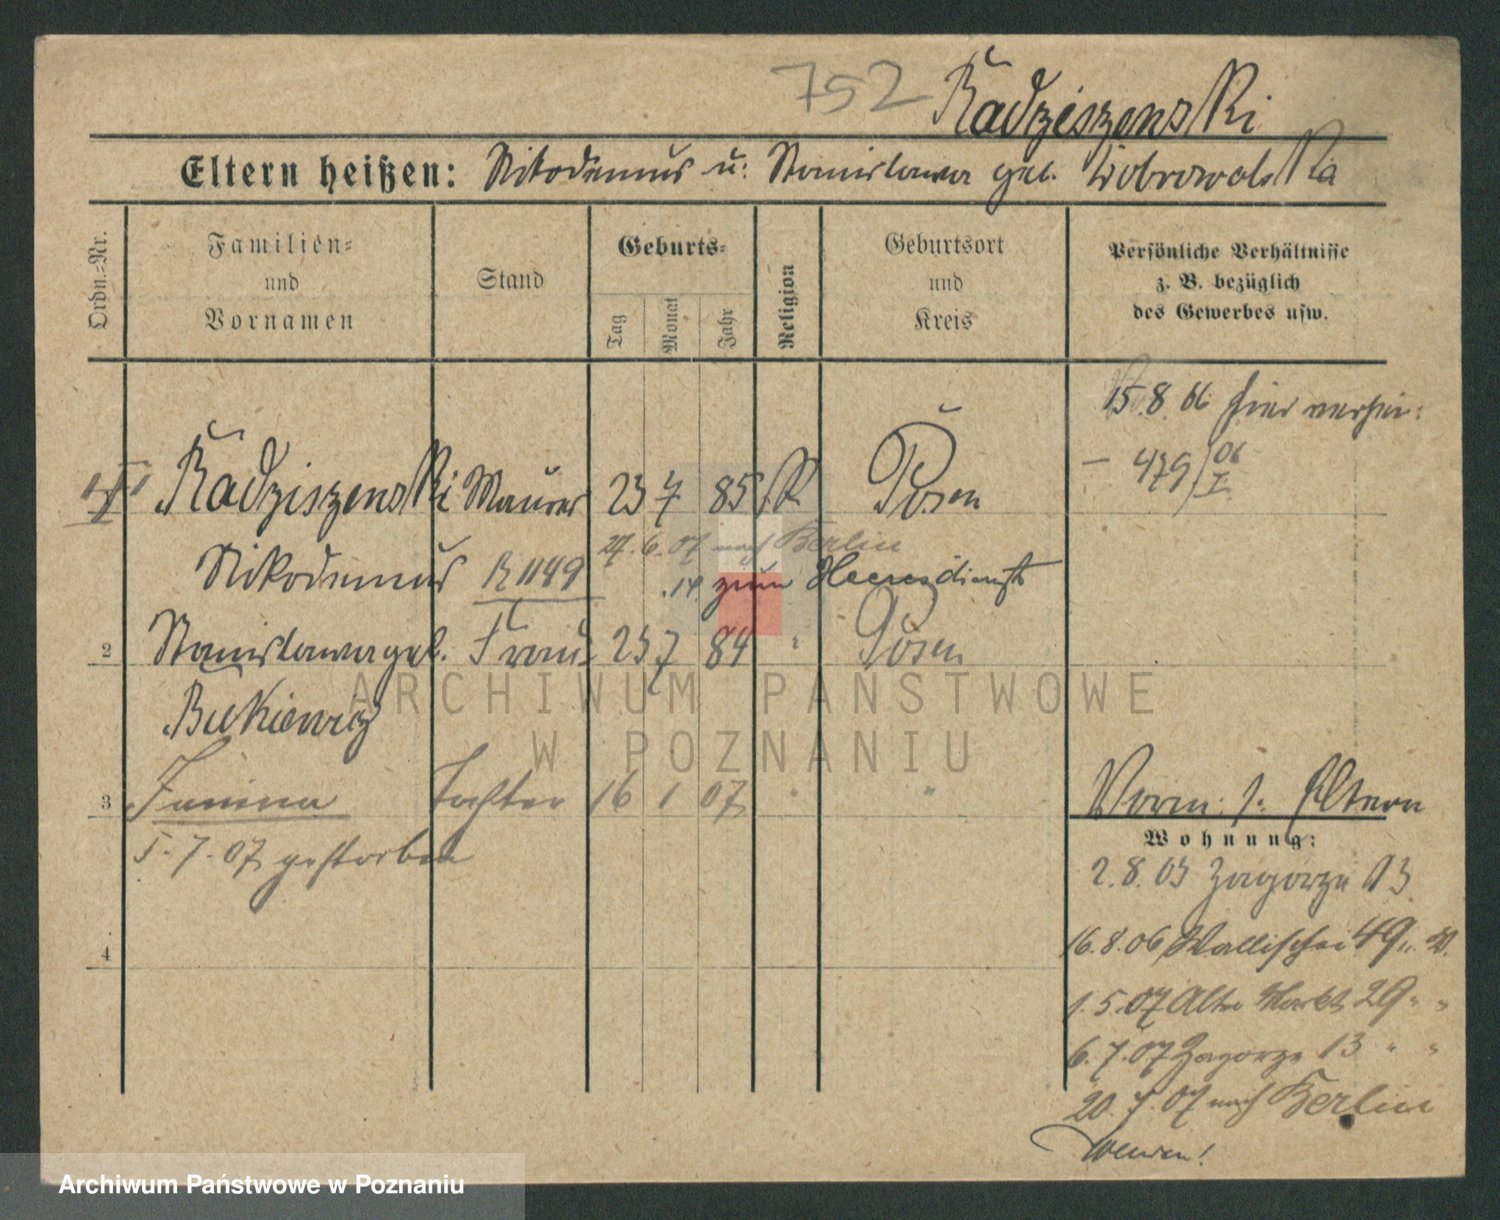 752 Radziszewski
Eltern heißen: Nikodemus u: Stanislawa geb. Dobrowolska
Ordn.=Nr.
Familien=
und
Vornamen
Stand
Geburts=
Tag
Monat
Jahr
Religion
Geburtsort
und
Kreis
Persönliche Verhältnisse
z. B. bezüglich
des Gewerbes usw.
15.8.06 hier verhei:
— 479/06
I
Radziszewski Maurer 23 7 85 K Posen
27.6.07 nach Berlin
Nikodemus R 1149 .14 zum Heeresdienst
2 Stanislawa geb. Frau 23 7 84 " Posen
Bukiewicz
3 Janina Tochter 16 1 07 " "
5.7.07 gestorben
4
Vorm: s: Eltern
Wohnung:
2.8.05 Zagorze 13
16.8.06 Wallischei 49
1.5.07 Alte Markt 29 " "
6.7.07 Zagorze 13 " "
20.7.07 nach Berlin
ARCHIWUM PAŃSTWOWE
W POZNANIU
Archiwum Państwowe w Poznaniu